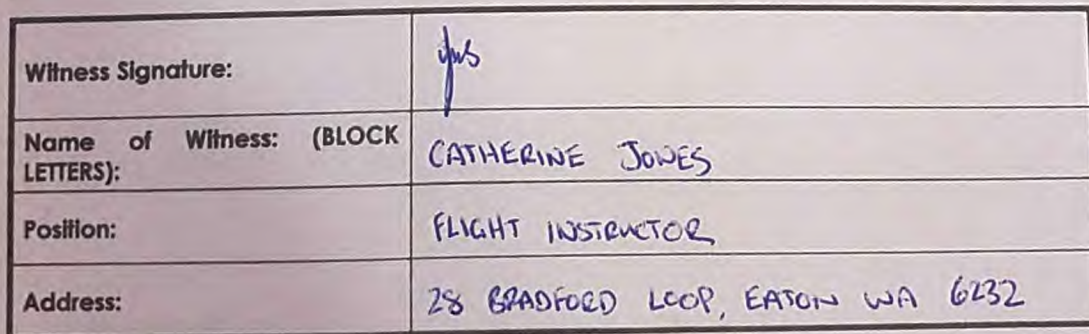 Witness Signature:
Name of Witness: (BLOCK LETTERS):
CATHERINE JONES
Position:
FLIGHT INSTRUCTOR
Address:
28 BRADFORD LOOP, EATON WA 6232